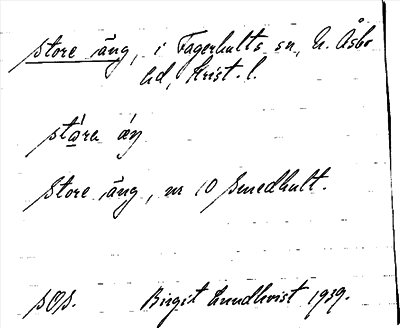 Store äng, i Fagerhults sn, N. Åsbo
hd, Krist. l.
stára áŋ
Store äng, nr 10 Smedhult.
sOs. Birgit Lundkvist 1939.